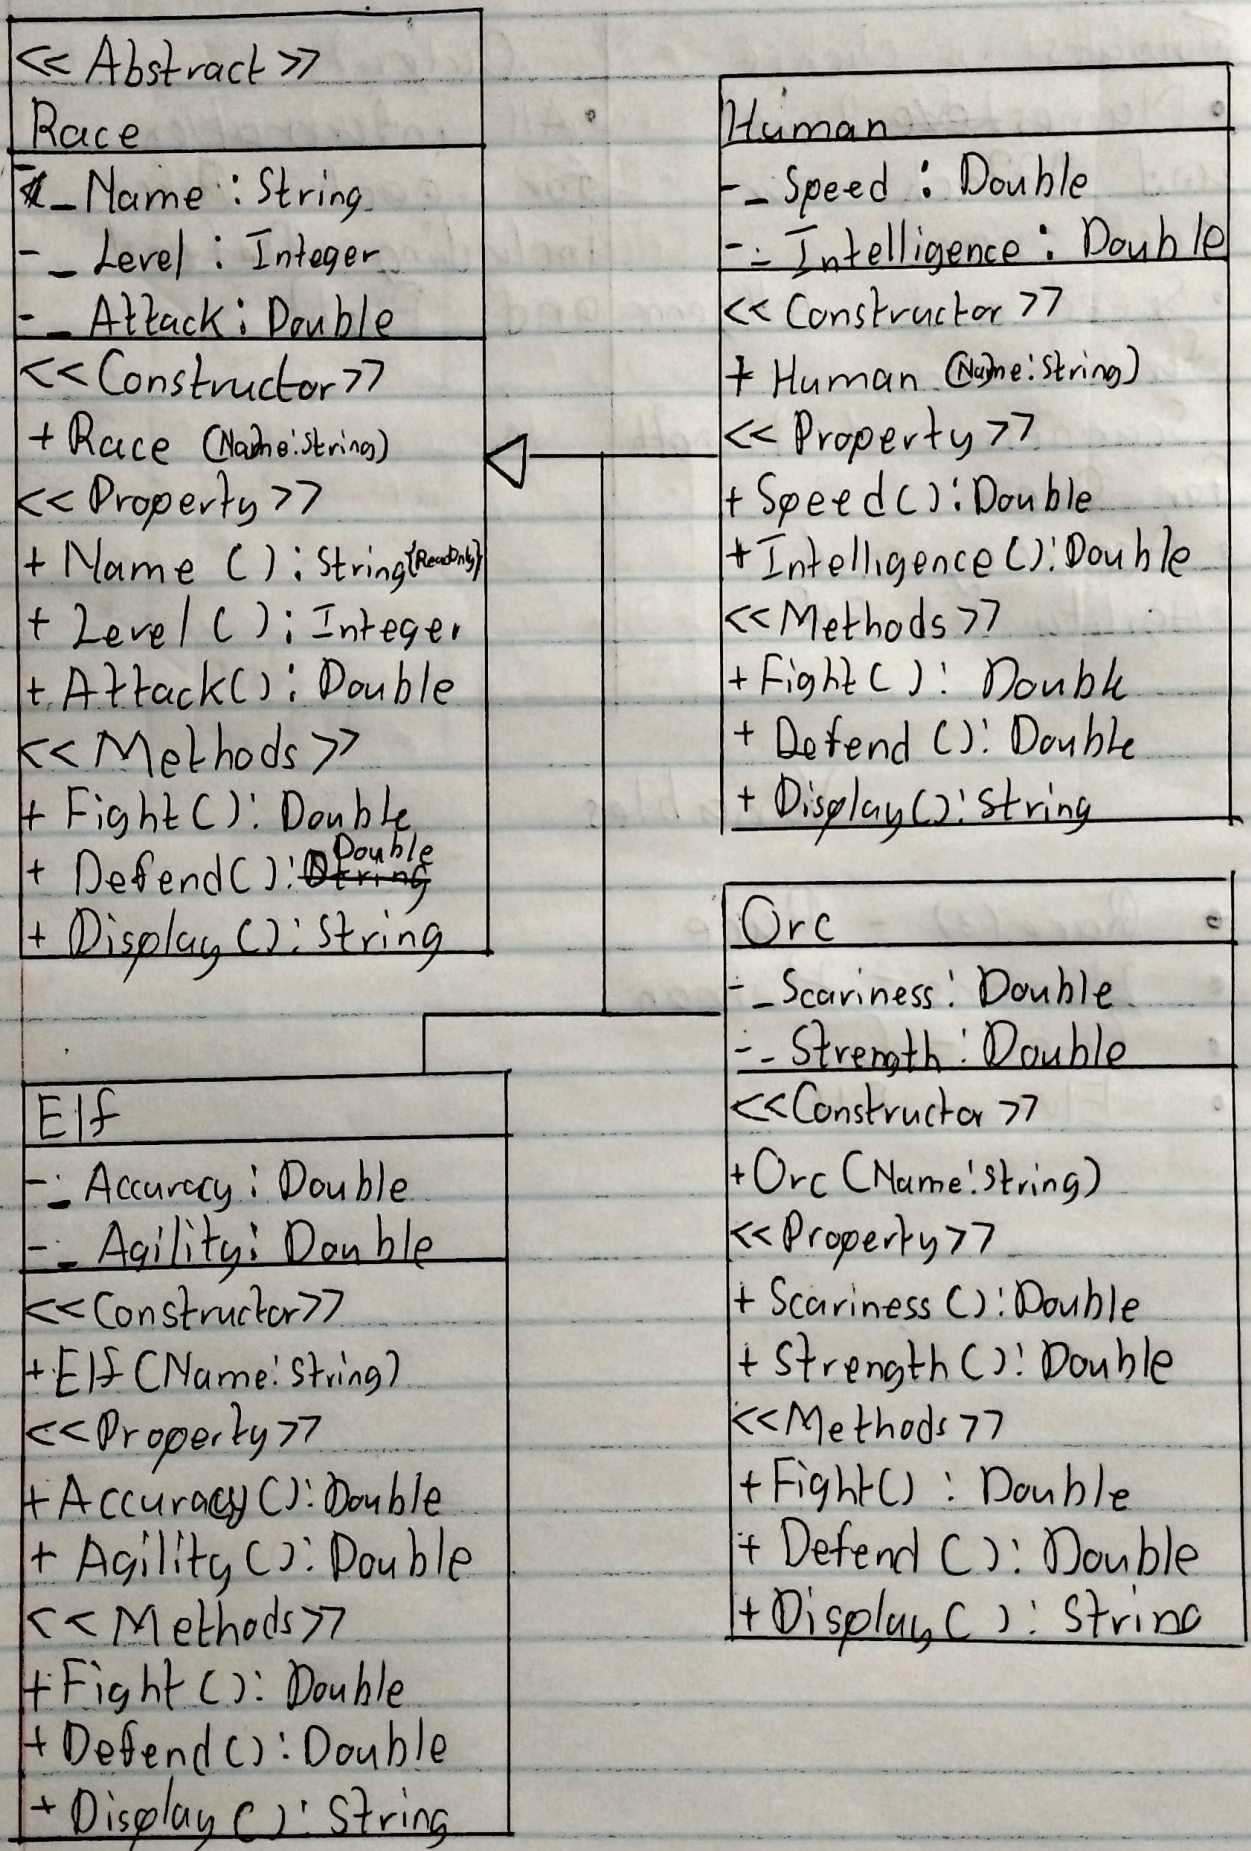 << Abstract >>
Race
- _ Name : String
- _ Level : Integer
- _ Attack : Double
<< Constructor >>
+ Race (Name : String)
<< Property >>
+ Name ( ) : String {ReadOnly}
+ Level ( ) : Integer
+ Attack( ) : Double
<< Methods >>
+ Fight ( ) : Double
+ Defend ( ) : Double
+ Display ( ) : String
Human
- _ Speed : Double
- _ Intelligence : Double
<< Constructor >>
+ Human (Name : String)
<< Property >>
+ Speed ( ) : Double
+ Intelligence ( ) : Double
<< Methods >>
+ Fight ( ) : Double
+ Defend ( ) : Double
+ Display ( ) : String
Orc
- _ Scariness : Double
- _ Strength : Double
<< Constructor >>
+ Orc (Name : String)
<< Property >>
+ Scariness ( ) : Double
+ Strength ( ) : Double
<< Methods >>
+ Fight ( ) : Double
+ Defend ( ) : Double
+ Display ( ) : String
Elf
- _ Accuracy : Double
- _ Agility : Double
<< Constructor >>
+ Elf (Name : String)
<< Property >>
+ Accuracy ( ) : Double
+ Agility ( ) : Double
<< Methods >>
+ Fight ( ) : Double
+ Defend ( ) : Double
+ Display ( ) : String